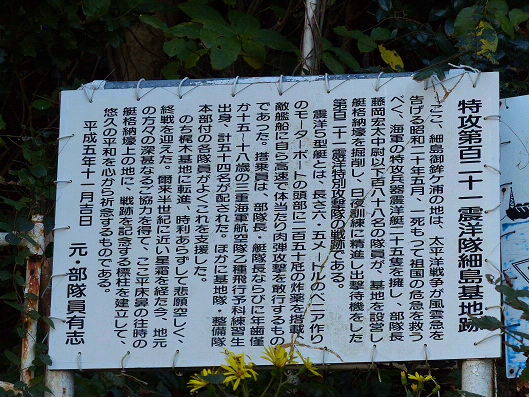 特攻第百二十一震洋隊細島基地跡
ここ、細島御鉾ケ浦の地は、太平洋戦争が風雲急を
告げる昭和二十年五月、一死もつて祖国の危急を救う
べく、海軍の特攻兵器震洋艇二十五隻を擁し、部隊長
藤岡宏太中尉以下百八十八名の隊員が、基地を設営し
艇格納壕を掘削し、日夜訓練に精進し出撃待機をした
第百二十一震洋特別攻撃隊の戦跡である。
震洋一型艇とは、長さ六・五メートルのベニア作り
のモーターボートの頭部に二百五十瓩の炸薬を搭載し
敵艦船に自ら高速で体当たり肉弾攻撃を敢行するもの
であつた。搭乗員は、部隊長、艇隊長ならびに年歯僅
か十五～十八歳の三重海軍航空隊乙種飛行予科練習生
出身、計五十四名が配された。ほかに基地隊・整備隊
本部付の各隊員がよくこれを支援した。
のち梶木基地に転進、時利あらずして悲願空しく、
終戦を迎えた。爾来半世紀に近い星霜を経た今、地元
の方々の深甚なるご協力を得て、ここ平床鼻の往時の
艇格納壕上の地に、戦跡を記念する標柱を建立して、
悠久の平和を心から祈念するものである。
平成五年十一月吉日　元・部隊員有志